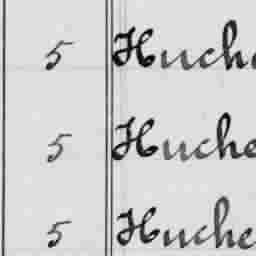 5 Huche
5 Huche
5 Huche